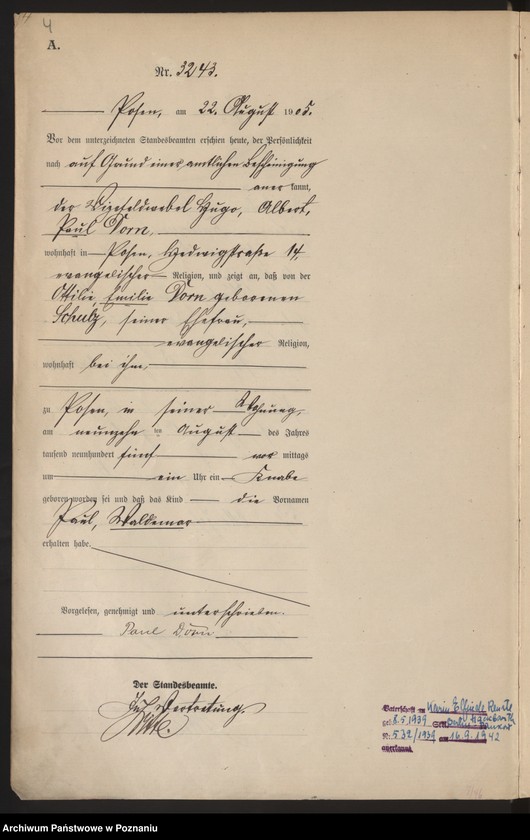 4
A.
Nr. 3243.
Posen, am 22. August 1905.
Vor dem unterzeichneten Standesbeamten erschien heute, der Persönlichkeit
nach auf Grund einer amtlichen Bescheinigung
anerkannt,
der Vizefeldwebel Hugo, Albert,
Paul Dorn,
wohnhaft in Posen, Hedwigstraße 14
evangelischer Religion, und zeigt an, daß von der
Ottilie, Emilie Dorn geborenen
Schulz, seiner Ehefrau,
evangelischer Religion,
wohnhaft bei ihm,
zu Posen, in seiner Wohnung,
am neunzehnten August des Jahres
tausend neunhundert fünf vormittags
um ein Uhr ein Knabe
geboren worden sei und daß das Kind die Vornamen
Paul, Waldemar
erhalten habe.
Vorgelesen, genehmigt und unterschrieben.
Paul Dorn
Der Standesbeamte.
In Vertretung.
Vaterschaft zu Karin Elfriede Renate
geb. 8.5.1939 StA Berlin-
Nr. 532/1939 am 16.9.1942
anerkannt.
Archiwum Państwowe w Poznaniu